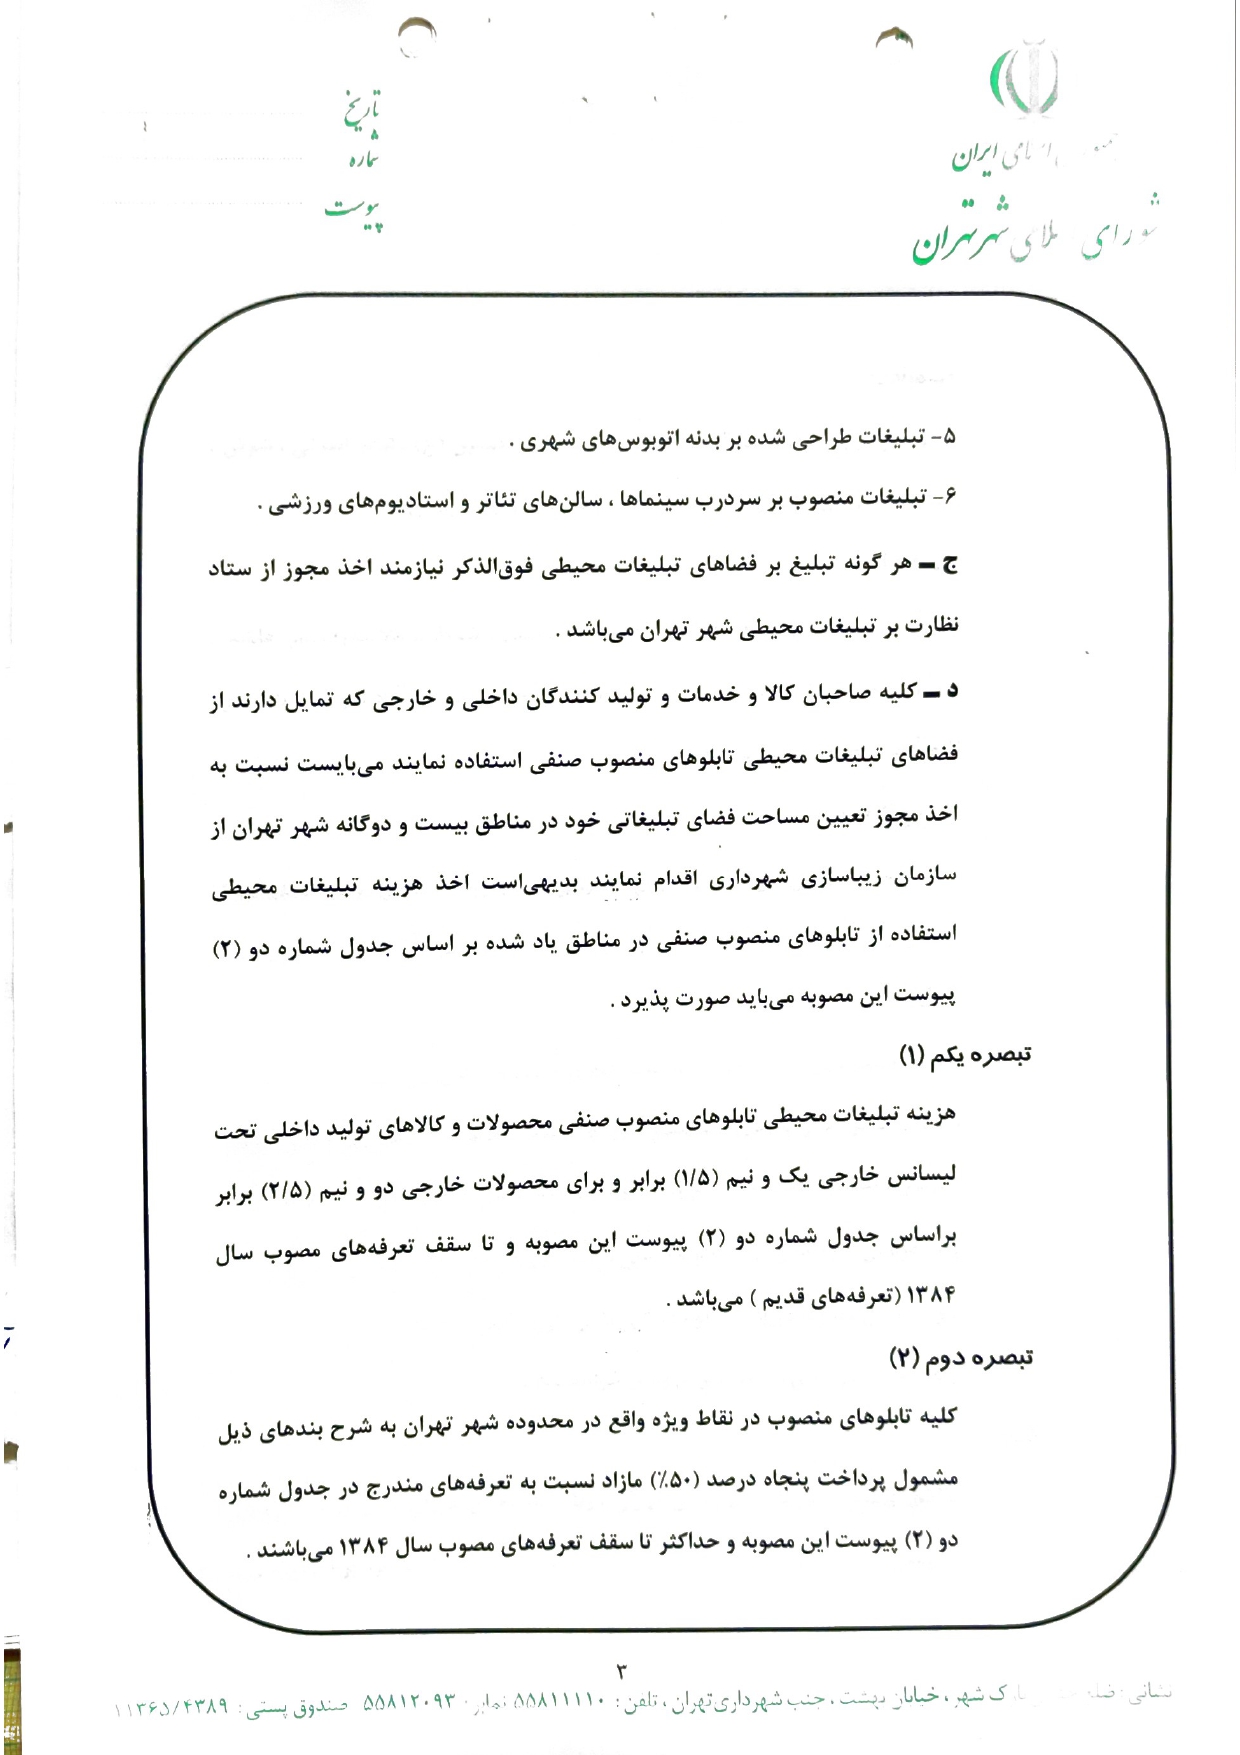 ایران
شورای شهر تهران
تاریخ
شماره
پیوست
۵- تبلیغات طراحی شده بر بدنه اتوبوس‌های شهری .
۶- تبلیغات منصوب بر سردرب سینماها ، سالن‌های تئاتر و استادیوم‌های ورزشی .
ج – هر گونه تبلیغ بر فضاهای تبلیغات محیطی فوق‌الذکر نیازمند اخذ مجوز از ستاد
نظارت بر تبلیغات محیطی شهر تهران می‌باشد .
د – کلیه صاحبان کالا و خدمات و تولید کنندگان داخلی و خارجی که تمایل دارند از
فضاهای تبلیغات محیطی تابلوهای منصوب صنفی استفاده نمایند می‌بایست نسبت به
اخذ مجوز تعیین مساحت فضای تبلیغاتی خود در مناطق بیست و دوگانه شهر تهران از
سازمان زیباسازی شهرداری اقدام نمایند بدیهی‌است اخذ هزینه تبلیغات محیطی
استفاده از تابلوهای منصوب صنفی در مناطق یاد شده بر اساس جدول شماره دو (۲)
پیوست این مصوبه می‌باید صورت پذیرد .
تبصره یکم (۱)
هزینه تبلیغات محیطی تابلوهای منصوب صنفی محصولات و کالاهای تولید داخلی تحت
لیسانس خارجی یک و نیم (۱/۵) برابر و برای محصولات خارجی دو و نیم (۲/۵) برابر
براساس جدول شماره دو (۲) پیوست این مصوبه و تا سقف تعرفه‌های مصوب سال
۱۳۸۴ (تعرفه‌های قدیم ) می‌باشد .
تبصره دوم (۲)
کلیه تابلوهای منصوب در نقاط ویژه واقع در محدوده شهر تهران به شرح بندهای ذیل
مشمول پرداخت پنجاه درصد (۵۰٪) مازاد نسبت به تعرفه‌های مندرج در جدول شماره
دو (۲) پیوست این مصوبه و حداکثر تا سقف تعرفه‌های مصوب سال ۱۳۸۴ می‌باشند .
۳
نشانی: شهر ، خیابان بهشت ، جنب شهرداری تهران ، تلفن: ۵۵۸۱۱۱۱۰ نمابر: ۵۵۸۱۲۰۹۳ صندوق پستی: ۱۱۳۶۵/۴۳۸۹